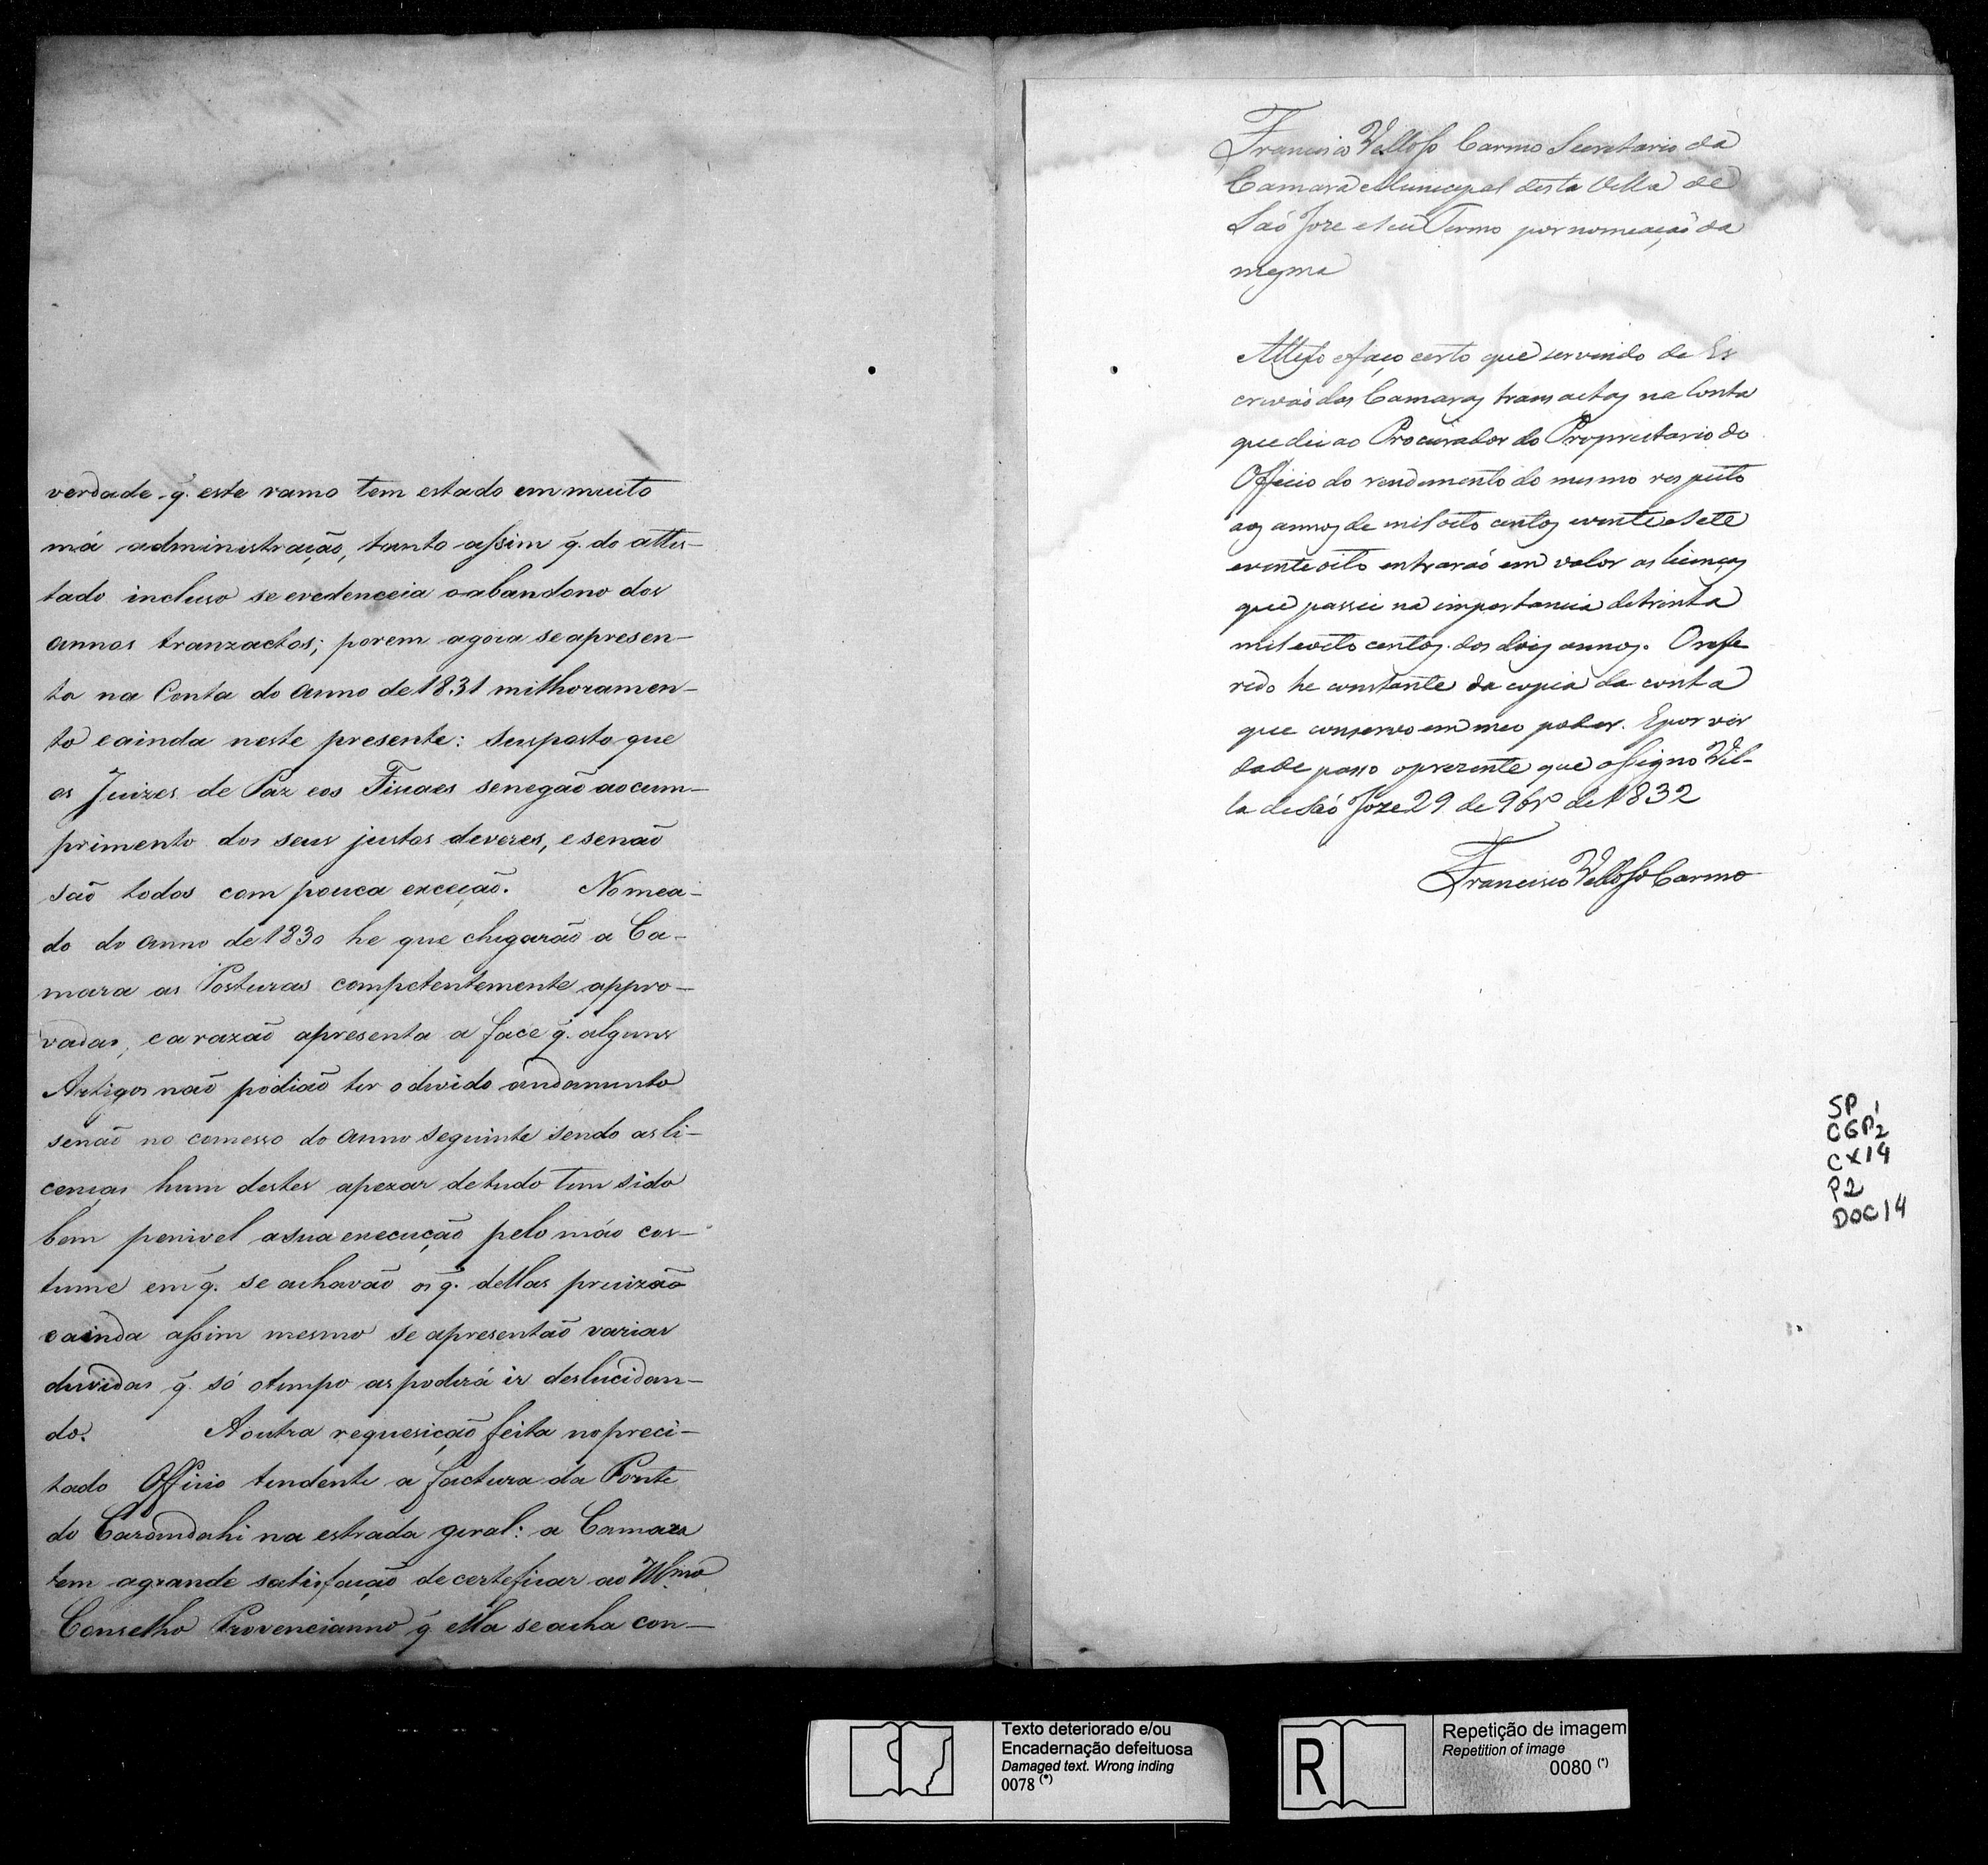 verdade q̃. este ramo tem estado em muito
má administração, tanto assim q̃. do attes-
tado incluso se evedenceia o abandono dos
annos tranzactos; porem agora se apresen-
ta na Conta do anno de 1831 milhoramen-
to e ainda neste presente: Susposto que
os Juizes de Paz e os Fiscaes se negão ao cum-
primento dos seus justos deveres, e senaõ
saõ todos com pouca exceição. Nomea-
do do anno de 1830 he que chegaraõ a Ca-
mara as Posturas competentemente appro-
vadas, e a razaõ apresenta a face q̃. alguns
Artigos naõ podiaõ ter o devido andamento
senaõ no comesso do anno seguinte sendo as li-
cenças hum destes apezar de tudo tem sido
bem penivel a sua execução pelo máo cos-
tume em q̃. se achavaõ os q̃. dellas precizaõ
e ainda assim mesmo se apresentaõ varias
duvidas q̃. só o tempo as poderá ir deslucidan-
do. A outra requesicaõ feita no preci-
tado Officio tendente a factura da Ponte
do Carandahi na estrada geral: a Camara
tem a grande satisfaçaõ de certeficar ao Illmo
Conselho Provencianno q̃ ella se acha con-
Francisco Vellozo Carmo Secretario da
Camara Municipal desta Villa de
Saõ Joze e seu Termo por nomeaçaõ da
mesma
Attesto e faço certo que servindo de Es
crivaõ das Camaras transactas na Conta
que dei ao Procurador do Proprietario do
Officio do rendimento do mesmo respeito
aos annos de mil oito centos e vinte e sete
e vinte oito entraraõ em valor as licenças
que passei na importancia de trinta
mil e oito centos dos dois annos. O refe
rido he constante da copia da conta
que conservo em meo poder. E por ver
dade passo o prezente que assigno Vil-
la de Saõ Joze 29 de 9bro de 1832
Francisco Vellozo Carmo
SP 1
CGP2
CX14
P2
DOC14
Texto deteriorado e/ou
Encadernação defeituosa
Damaged text. Wrong inding
0078 (*)
R
Repetição de imagem
Repetition of image
0080 (*)